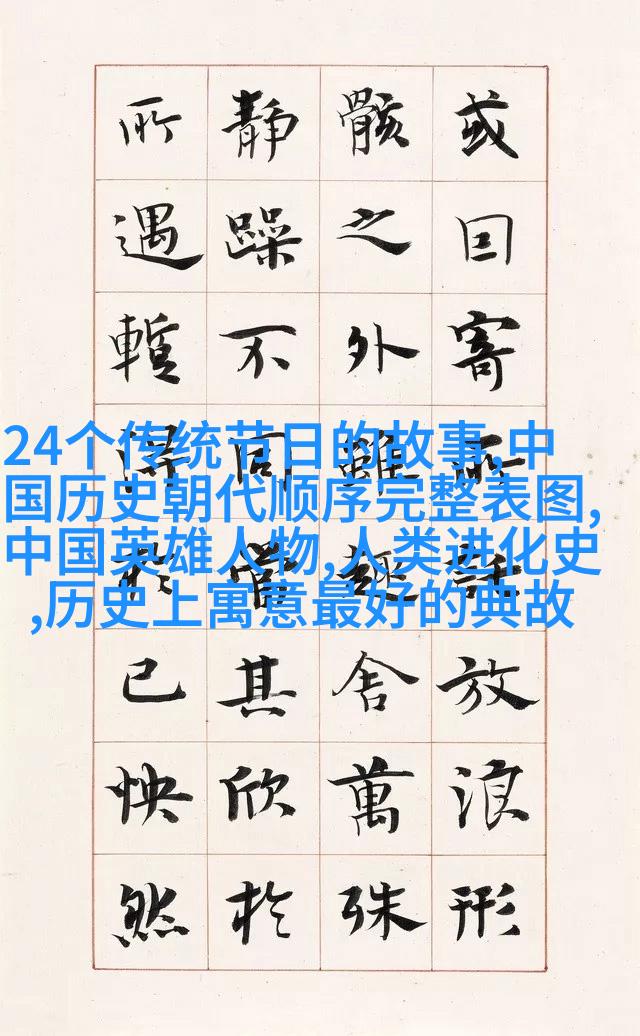 或因寄所託放浪形
骸之外雖趣舍萬殊
靜躁不同當其欣於
所遇暫得於已怏然
24个传统节日的故事,中
国历史朝代顺序完整表图,
中国英雄人物,人类进化史
,历史上寓意最好的典故